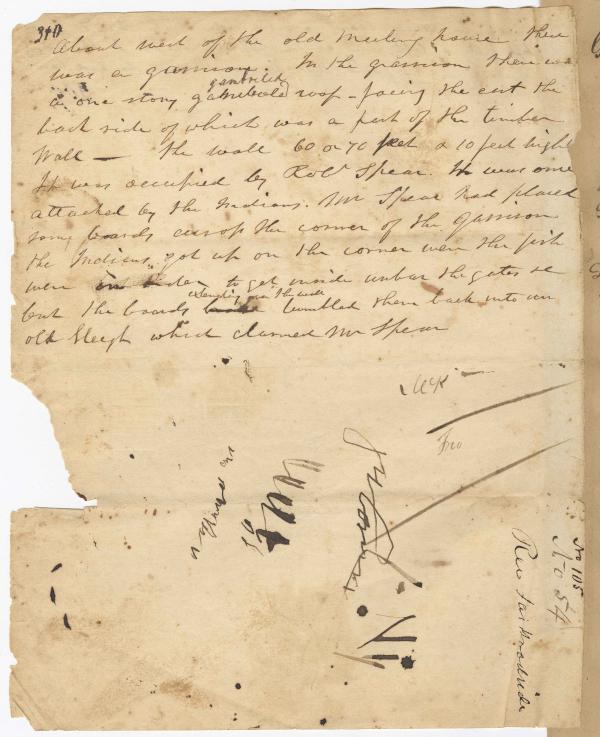 340
About west of the old meeting house there
was a garrison. In the garrison there was
gambriled
a one story gambriled roof - facing the east the
back side of which was a part of the timber
Wall — the wall 60 or 70 feet & 10 feet high
It was occupied by Robt Spear. It was once
attacked by the Indians. Mr Spear had placed
long boards across the corner of the garrison
the Indians got up on the corner were the fish
were in order to get inside unbar the gates &c
extending over the wall
but the boards tumbled them back into an
old sleigh which alarmed Mr Spear
McK
No 105
No 54
Rev